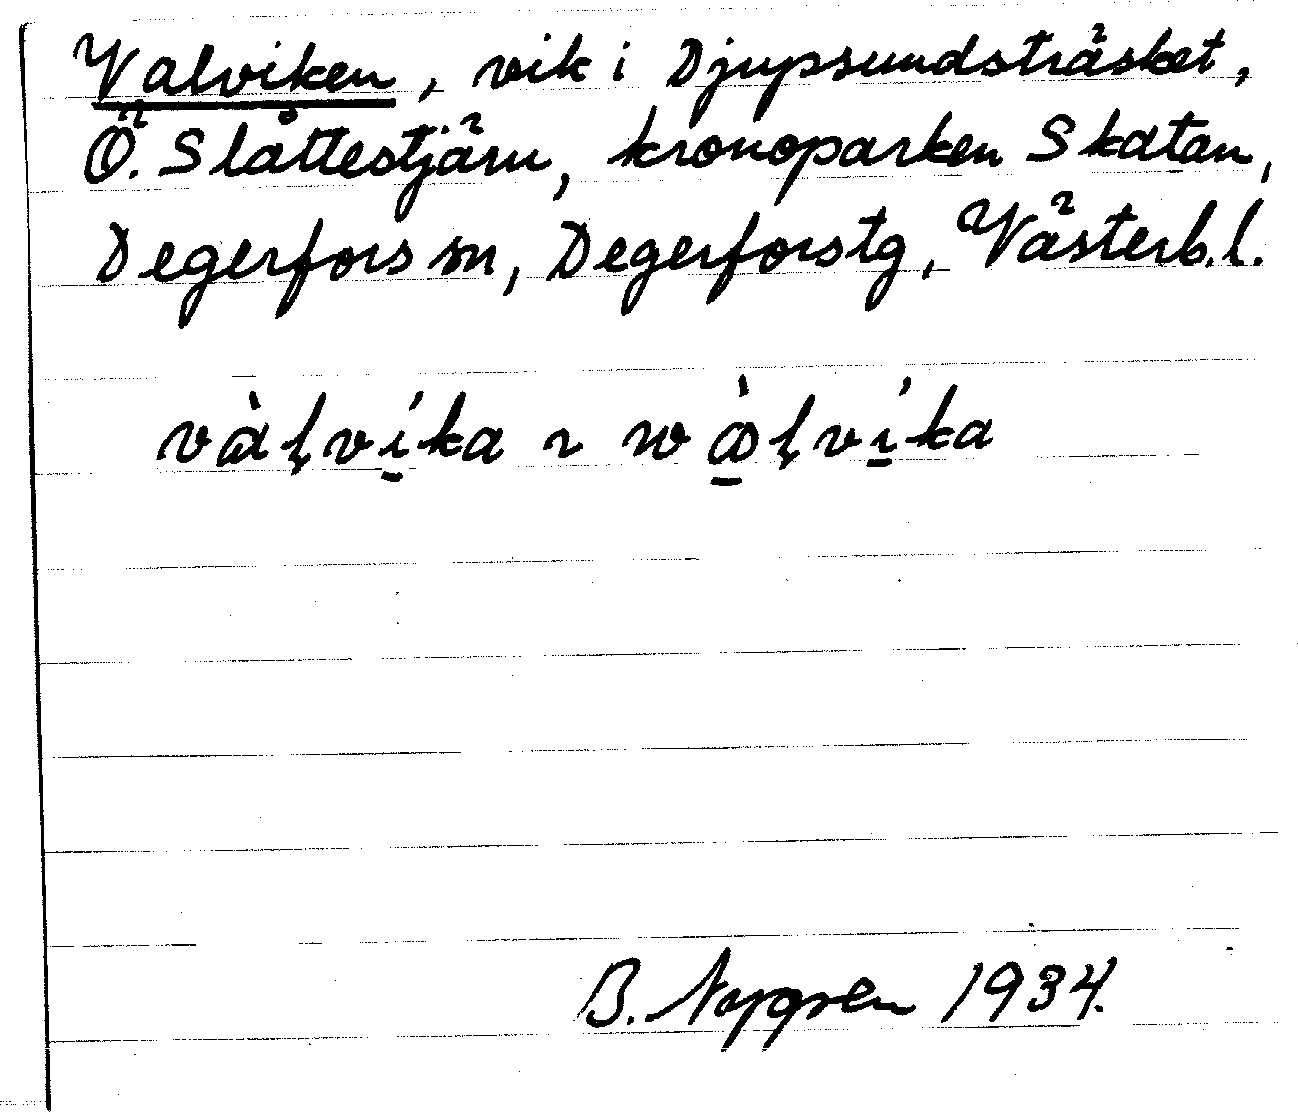 Valviken, vik i Djupsundsträsket,
Ö. Slåttestjärn, kronoparken Skatan,
Degerfors sn, Degerforstg, Västerb.l.
vàl̥ví̱ka ~ wå̱̀l̥ví̱ka
B. Nygren 1934.